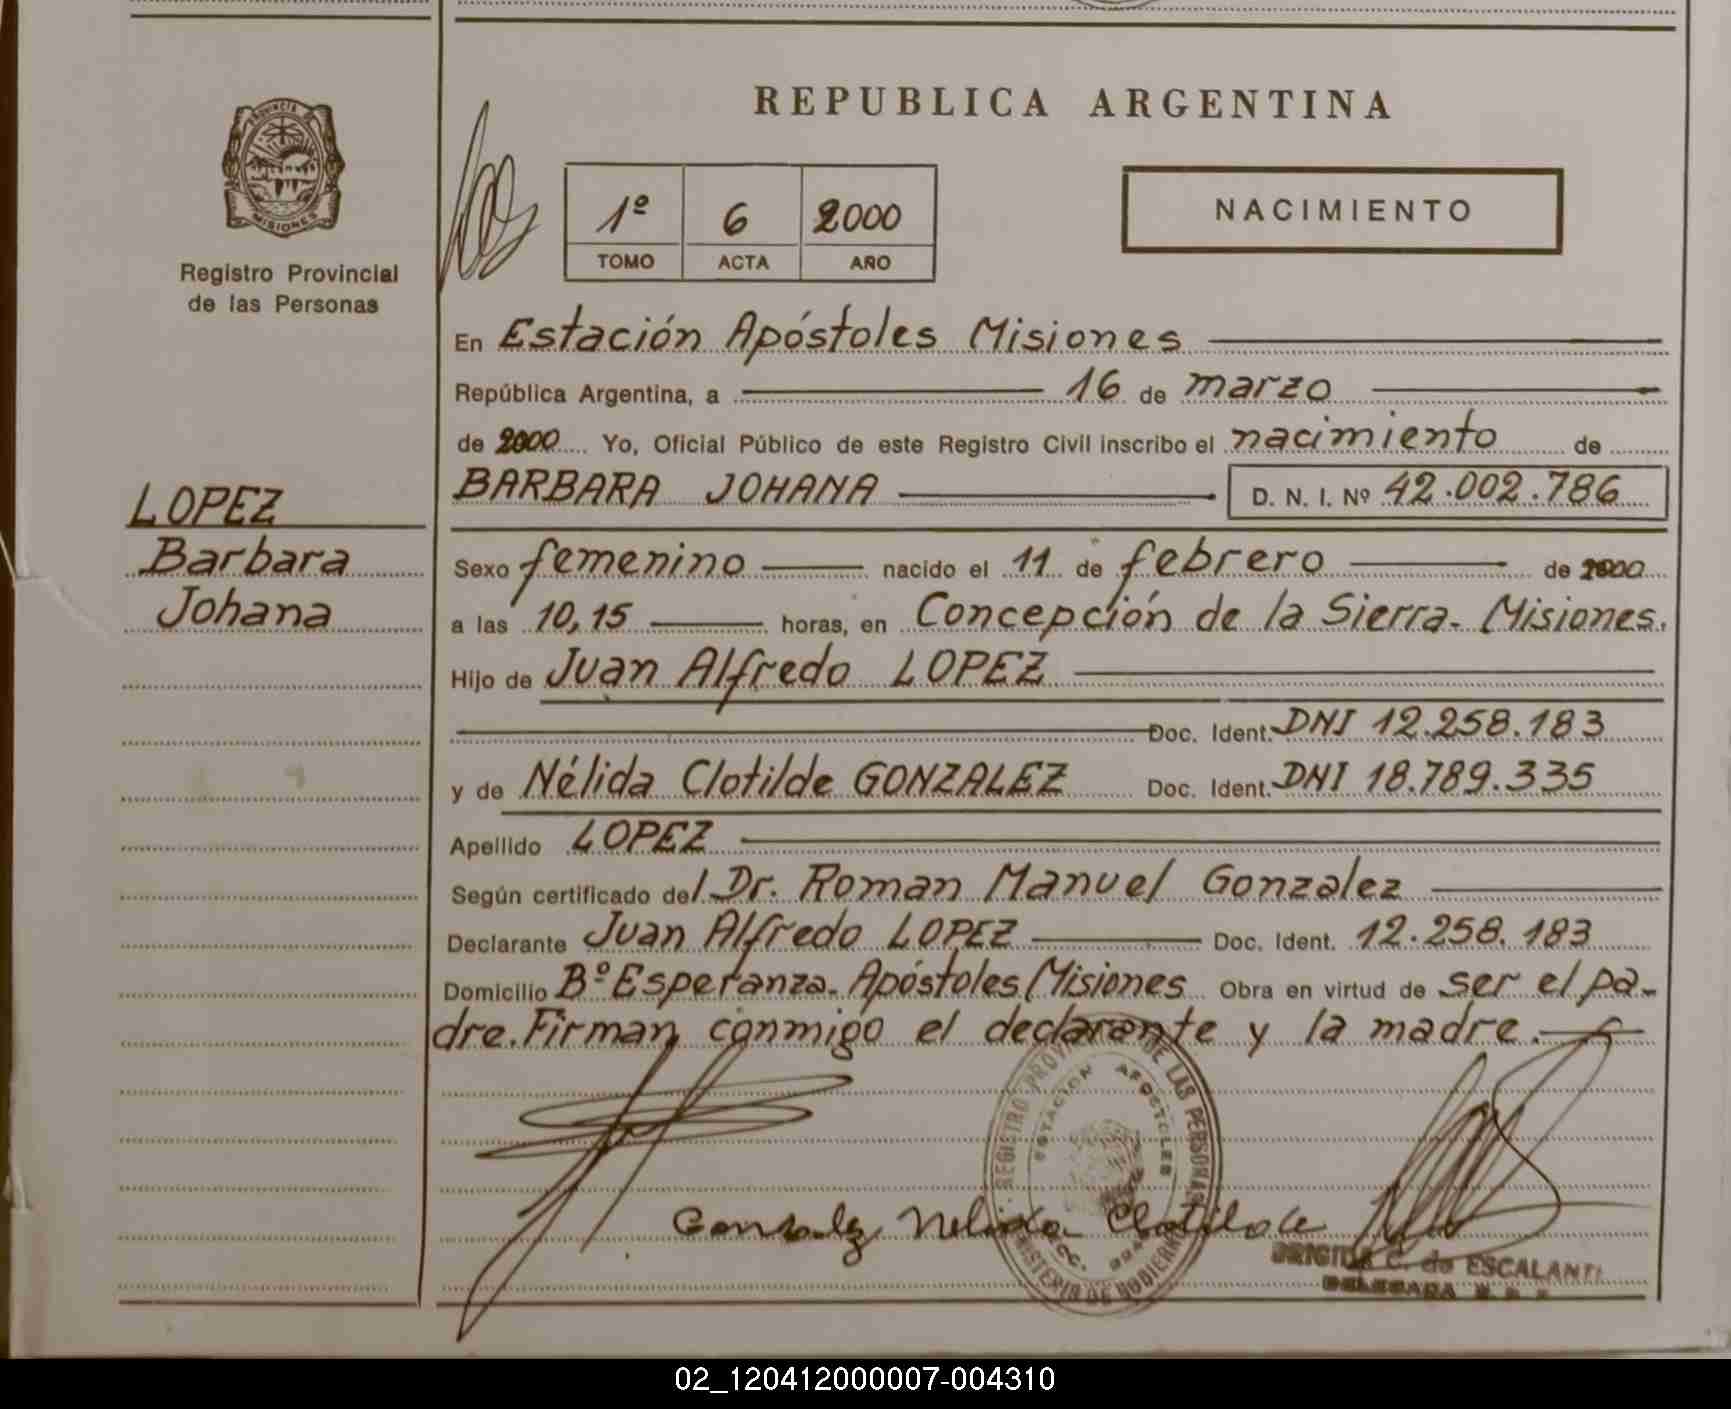 REPUBLICA ARGENTINA
PROVINCIA
MISIONES
Registro Provincial
de las Personas
1º 6 2000
TOMO ACTA AÑO
NACIMIENTO
En Estación Apóstoles Misiones
República Argentina, a 16 de marzo
de 2000 Yo, Oficial Público de este Registro Civil inscribo el nacimiento de
BARBARA JOHANA D. N. I. Nº 42.002.786
LOPEZ
Barbara
Johana
Sexo femenino nacido el 11 de febrero de 2000
a las 10,15 horas, en Concepción de la Sierra. Misiones.
Hijo de Juan Alfredo LOPEZ
Doc. Ident. DNI 12.258.183
y de Nélida Clotilde GONZALEZ Doc. Ident. DNI 18.789.335
Apellido LOPEZ
Según certificado del Dr. Roman Manuel Gonzalez
Declarante Juan Alfredo LOPEZ Doc. Ident. 12.258.183
Domicilio Bº Esperanza. Apóstoles Misiones Obra en virtud de ser el pa-
dre. Firman conmigo el declarante y la madre.
REGISTRO PROVINCIAL DE LAS PERSONAS
ESTACION APOSTOLES
MINISTERIO DE GOBIERNO
Gonzalez Nelida Clotilde
BRIGIDA C. de ESCALANTE
DELEGADA
02_120412000007-004310